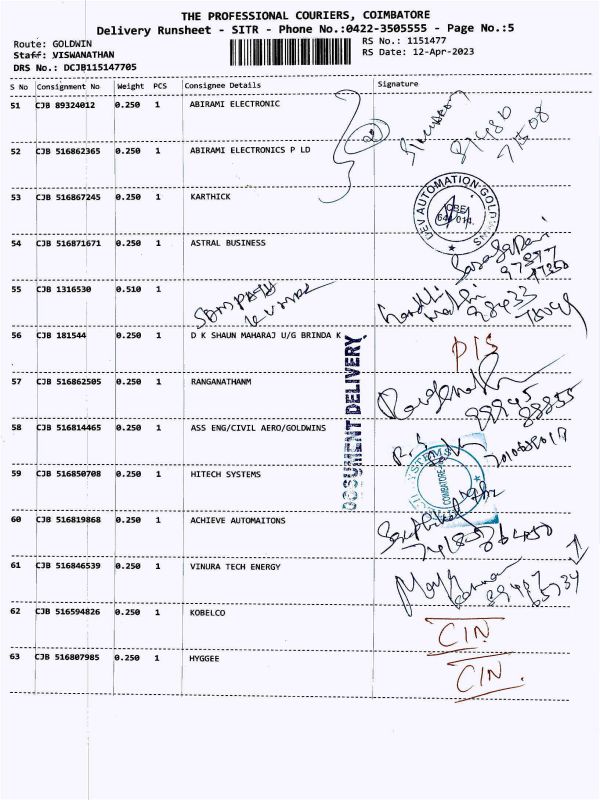 THE PROFESSIONAL COURIERS, COIMBATORE
Delivery Runsheet - SITR - Phone No.:0422-3505555 - Page No.:5
Route: GOLDWIN RS No.: 1151477
Staff: VISWANATHAN RS Date: 12-Apr-2023
DRS No.: DCJB115147705
S No Consignment No Weight PCS Consignee Details Signature
51 CJB 89324012 0.250 1 ABIRAMI ELECTRONIC
52 CJB 516862365 0.250 1 ABIRAMI ELECTRONICS P LD
53 CJB 516867245 0.250 1 KARTHICK
DEV AUTOMATION GOLDWINS
CBE
641 014.
54 CJB 516871671 0.250 1 ASTRAL BUSINESS
55 CJB 1316530 0.510 1 SAMPATH
KUMAR
56 CJB 181544 0.250 1 D K SHAUN MAHARAJ U/G BRINDA K D/S
DOCUMENT DELIVERY
57 CJB 516862505 0.250 1 RANGANATHANM
58 CJB 516814465 0.250 1 ASS ENG/CIVIL AERO/GOLDWINS
59 CJB 516850708 0.250 1 HITECH SYSTEMS
SYSTEMS
COIMBATORE
60 CJB 516819868 0.250 1 ACHIEVE AUTOMAITONS
61 CJB 516846539 0.250 1 VINURA TECH ENERGY
62 CJB 516594826 0.250 1 KOBELCO CIN
63 CJB 516807985 0.250 1 HYGGEE CIN.